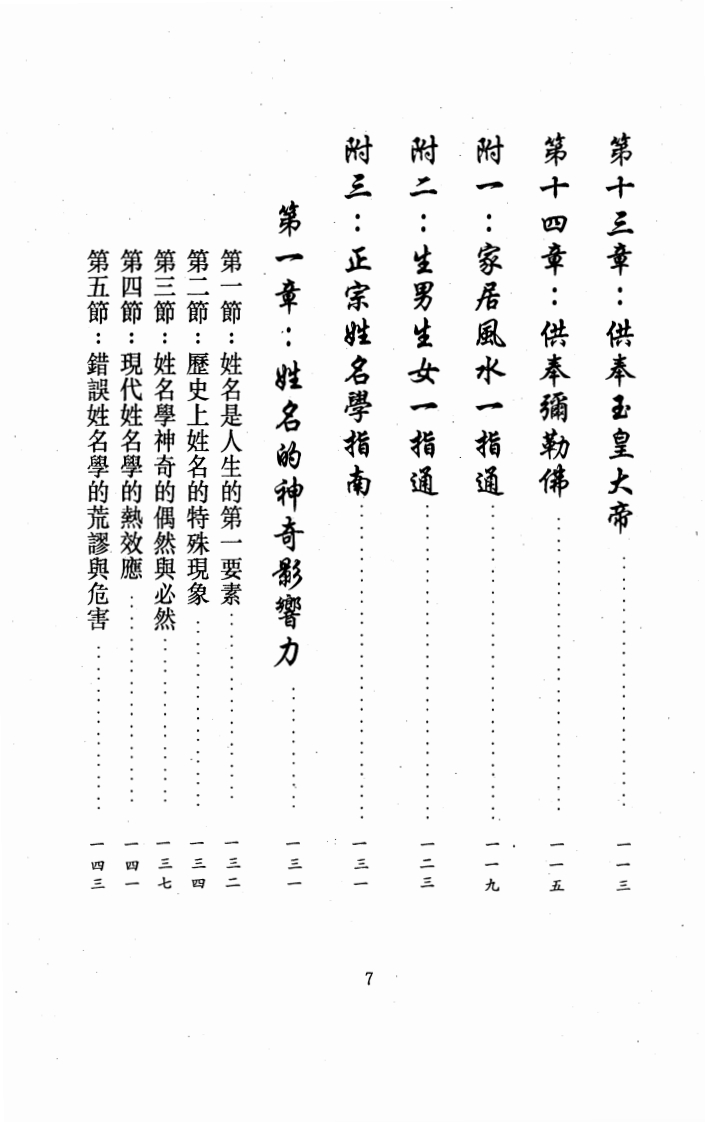 第十三章：供奉玉皇大帝……………………一一三
第十四章：供奉彌勒佛……………………一一五
附一：家居風水一指通……………………一一九
附二：生男生女一指通……………………一二三
附三：正宗姓名學指南……………………一三一
第一章：姓名的神奇影響力……………………一三一
第一節：姓名是人生的第一要素……………………一三二
第二節：歷史上姓名的特殊現象……………………一三四
第三節：姓名學神奇的偶然與必然……………………一三七
第四節：現代姓名學的熱效應……………………一四一
第五節：錯誤姓名學的荒謬與危害……………………一四三
7